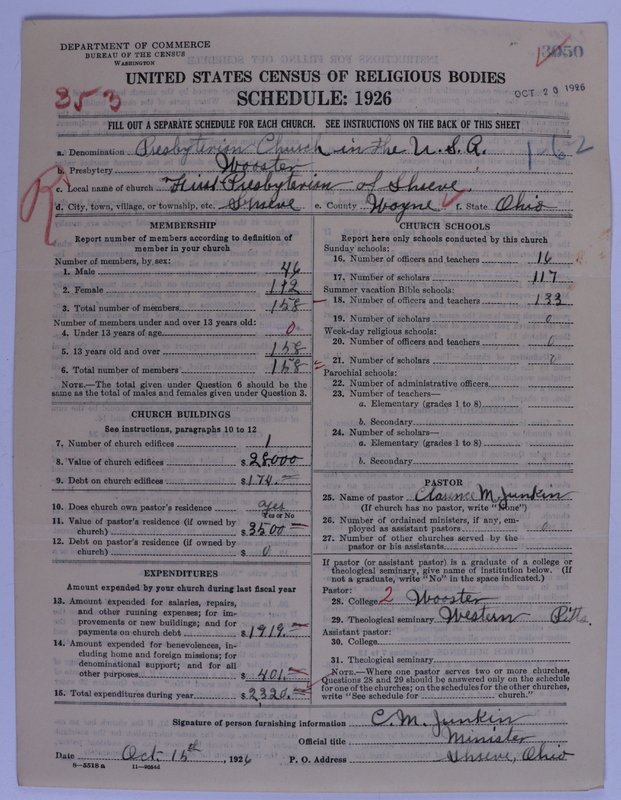 DEPARTMENT OF COMMERCE
BUREAU OF THE CENSUS
WASHINGTON
3950
UNITED STATES CENSUS OF RELIGIOUS BODIES
SCHEDULE: 1926
OCT 20 1926
353
FILL OUT A SEPARATE SCHEDULE FOR EACH CHURCH. SEE INSTRUCTIONS ON THE BACK OF THIS SHEET
a. Denomination Presbyterian Church in the U.S.A. 1-62
b. Presbytery Wooster
c. Local name of church First Presbyterian of Shreve
R
d. City, town, village, or township, etc. Shreve e. County Wayne f. State Ohio
MEMBERSHIP
Report number of members according to definition of
member in your church
Number of members, by sex:
1. Male 46
2. Female 112
3. Total number of members 158
Number of members under and over 13 years old:
4. Under 13 years of age 0
5. 13 years old and over 158
6. Total number of members 158
NOTE.—The total given under Question 6 should be the
same as the total of males and females given under Question 3.
CHURCH BUILDINGS
See instructions, paragraphs 10 to 12
7. Number of church edifices 1
8. Value of church edifices $ 28000
9. Debt on church edifices $ 174.
10. Does church own pastor's residence yes
Yes or No
11. Value of pastor's residence (if owned by
church) $ 3500
12. Debt on pastor's residence (if owned by
church) $ 0
EXPENDITURES
Amount expended by your church during last fiscal year
13. Amount expended for salaries, repairs,
and other running expenses; for im-
provements or new buildings; and for
payments on church debt $ 1919.
14. Amount expended for benevolences, in-
cluding home and foreign missions; for
denominational support; and for all
other purposes $ 401.
15. Total expenditures during year $ 2320.
CHURCH SCHOOLS
Report here only schools conducted by this church
Sunday schools:
16. Number of officers and teachers 16
17. Number of scholars 117
Summer vacation Bible schools:
18. Number of officers and teachers 133
19. Number of scholars 0
Week-day religious schools:
20. Number of officers and teachers 0
21. Number of scholars 0
Parochial schools:
22. Number of administrative officers
23. Number of teachers—
a. Elementary (grades 1 to 8)
b. Secondary
24. Number of scholars—
a. Elementary (grades 1 to 8)
b. Secondary
PASTOR
25. Name of pastor Clarence M. Junkin
(If church has no pastor, write "None")
26. Number of ordained ministers, if any, em-
ployed as assistant pastors 0
27. Number of other churches served by the
pastor or his assistants
If pastor (or assistant pastor) is a graduate of a college or
theological seminary, give name of institution below. (If
not a graduate, write "No" in the space indicated.)
Pastor:
28. College 2 Wooster
29. Theological seminary Western Pitts.
Assistant pastor:
30. College
31. Theological seminary
NOTE.—Where one pastor serves two or more churches,
Questions 28 and 29 should be answered only on the schedule
for one of the churches; on the schedules for the other churches,
write "See schedule for church."
Signature of person furnishing information C. M. Junkin
Official title Minister
Date Oct. 15th, 1926 P. O. Address Shreve, Ohio
8—5518 a